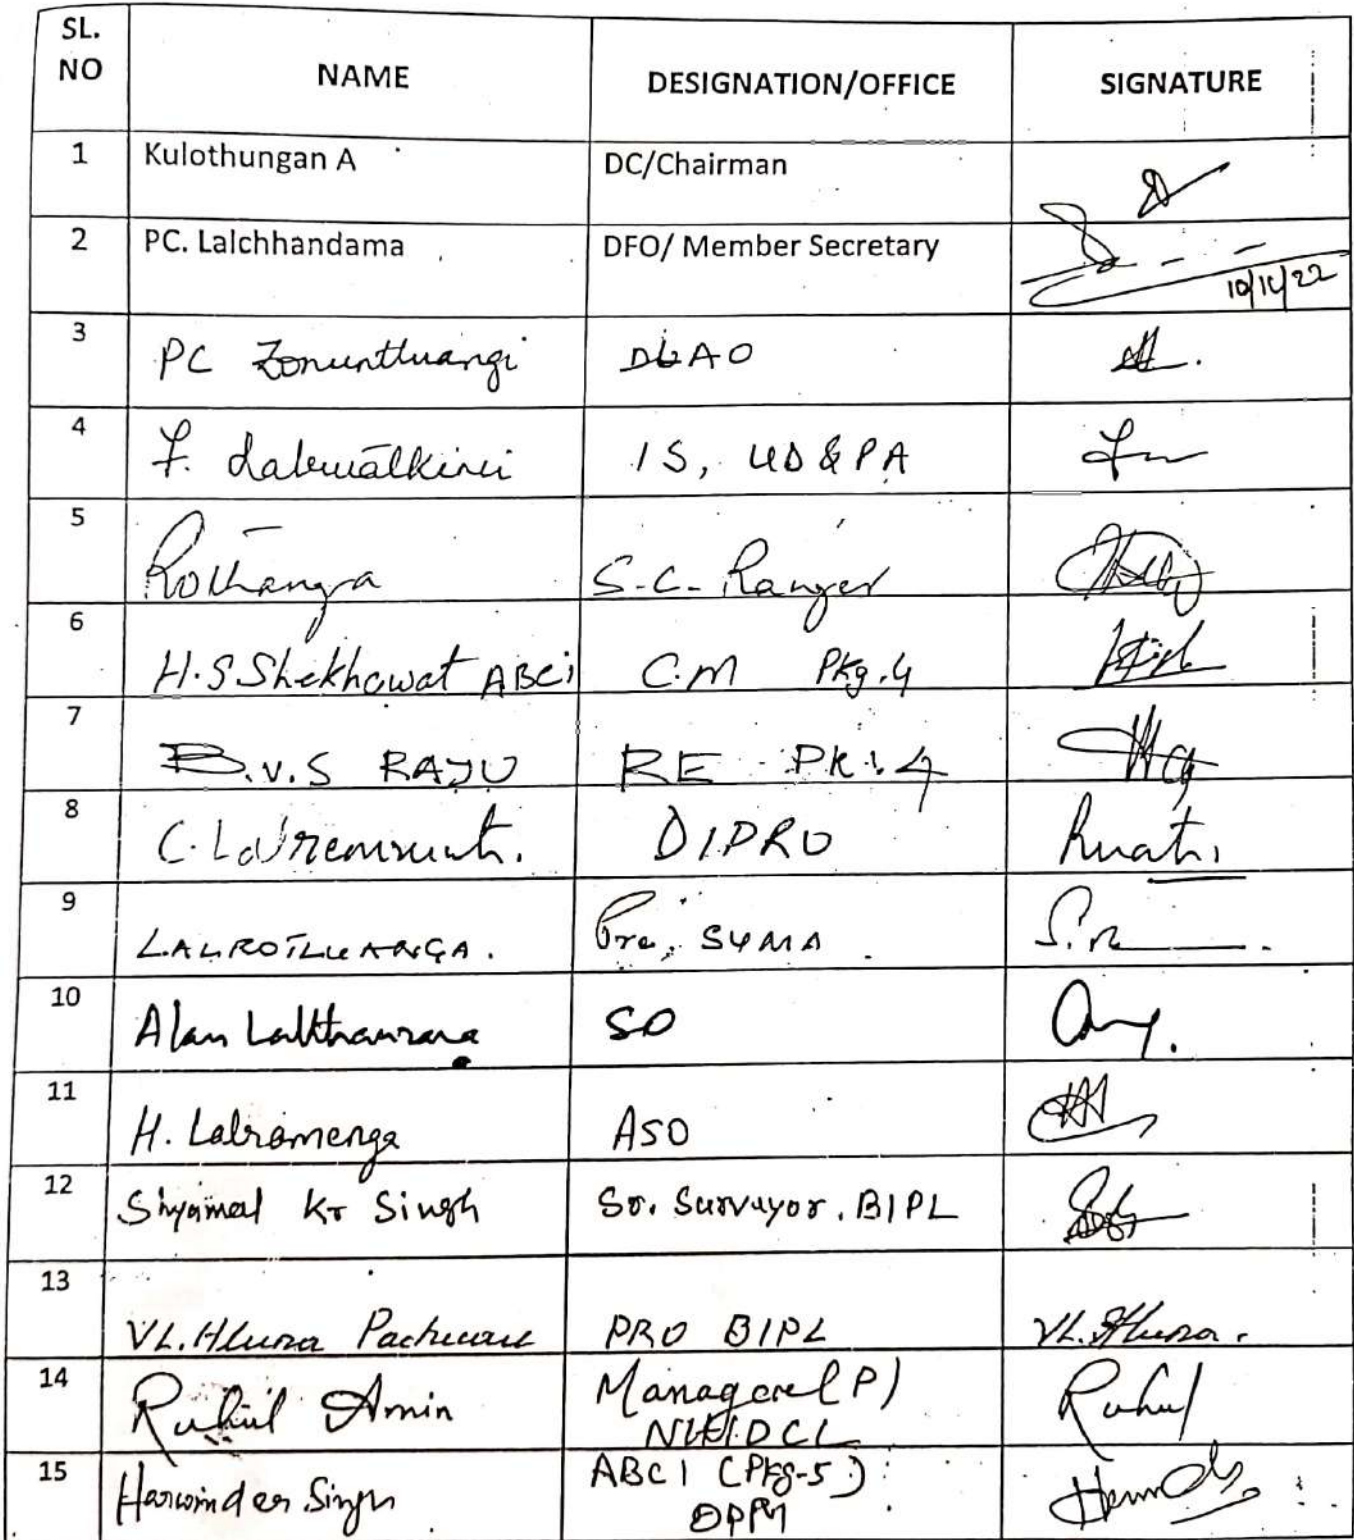 SL. NO NAME DESIGNATION/OFFICE SIGNATURE
1 Kulothungan A DC/Chairman
2 PC. Lalchhandama DFO/ Member Secretary
10/11/22
3 PC Zonunthuangi DLAO
4 F. IS, UD&PA
5 Rothanga S.C. Ranger
6 H.S Shekhawat ABCi C.M Pkg.4
7 B.V.S RAJU RE PK.4
8 C. DIPRO Ruati
9 LALROTLUANGA. Pre, SYMA
10 Alan SO
11 H. Lalramenga ASO
12 Shyamal Kr Singh Sr. Survuyor. BIPL
13 VL.Hluna Pachuau PRO BIPL VL.Hluna.
14 Ruhul Amin Manager(P) NHIDCL Ruhul
15 Harwinder Singh ABCI (Pkg-5) DPM